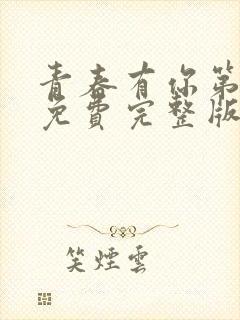 青春有你第
免費完整版
笑煙雲